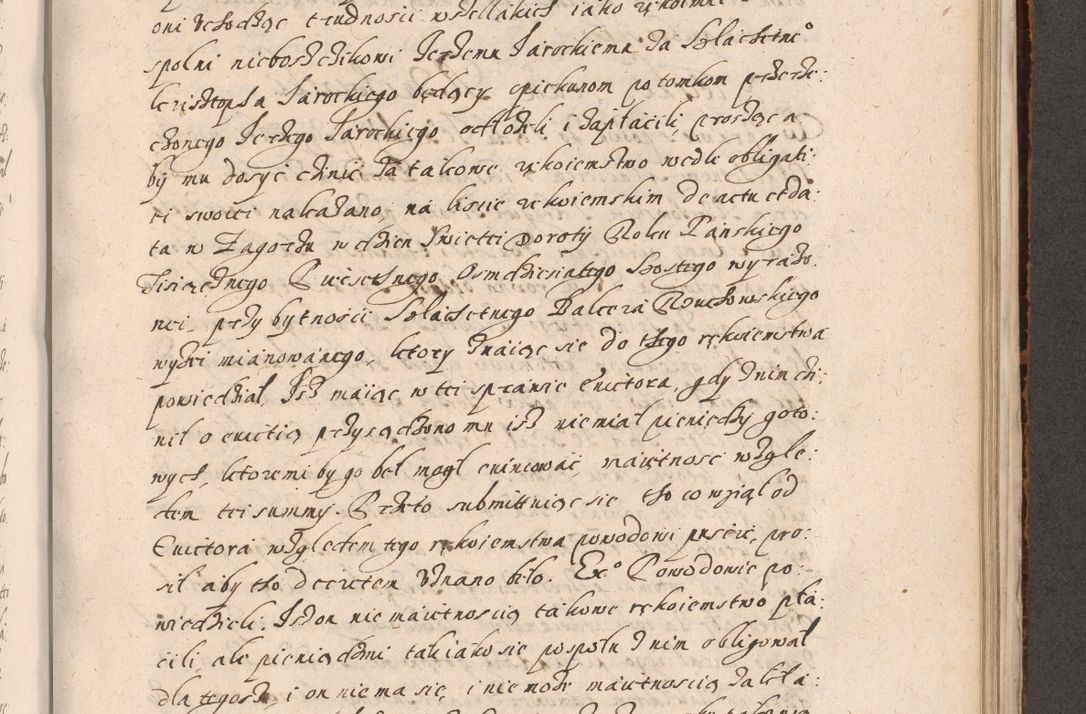 oni uchodząc trudnosci wszellakich iako rękoimie
spolni nieboszczikowi Jerzemu Jarockiemu za Szlachetne°
krzisztopha Jarockiego będący opiekunom potomkom przerze:
czonego Jerzego Jarockiego odłożeli i zapłacili, prosząc a
by mu dosyć czinić za takowe rękoiemstwo wedle obligati:
ei swoiei nakazano, na liscie rękoiemskim de actu et da:
ta w Zagorzu w dzien Swiettei Doroty Roku Pańskiego
Tisięcznego Pięcsetnego Osmdziesiątego szostego wyrażo:
nei, przy bytnosci Szlachetnego Balcera
wyżei mianowanego, ktory znaiąc sie do thego rękoiemstwa
powiedział, Isz maiąc w tei sprawie Evictora, gdy z nim czi:
nił o evictią przysądzono mu isz nie miał pieniędzy goto:
wych, ktoremi by go beł mogł evincować, maiętnosc wzglę:
dem tei summy. Przeto submittuiąc sie tho co wziął od
Evictora względem tego rękoiemstwa powodowi puscic, pro:
sił aby tho decretem uznano beło. Ex° Powodowie po:
wiedzieli. Isz on nie maiętnoscią takowe rękoiemstwo pła:
cili, ale pieniądzmi tak iako sie pospołu z nim obligował
dla tegosz i on nie ma się, i nie może maiętnoscią zakła: